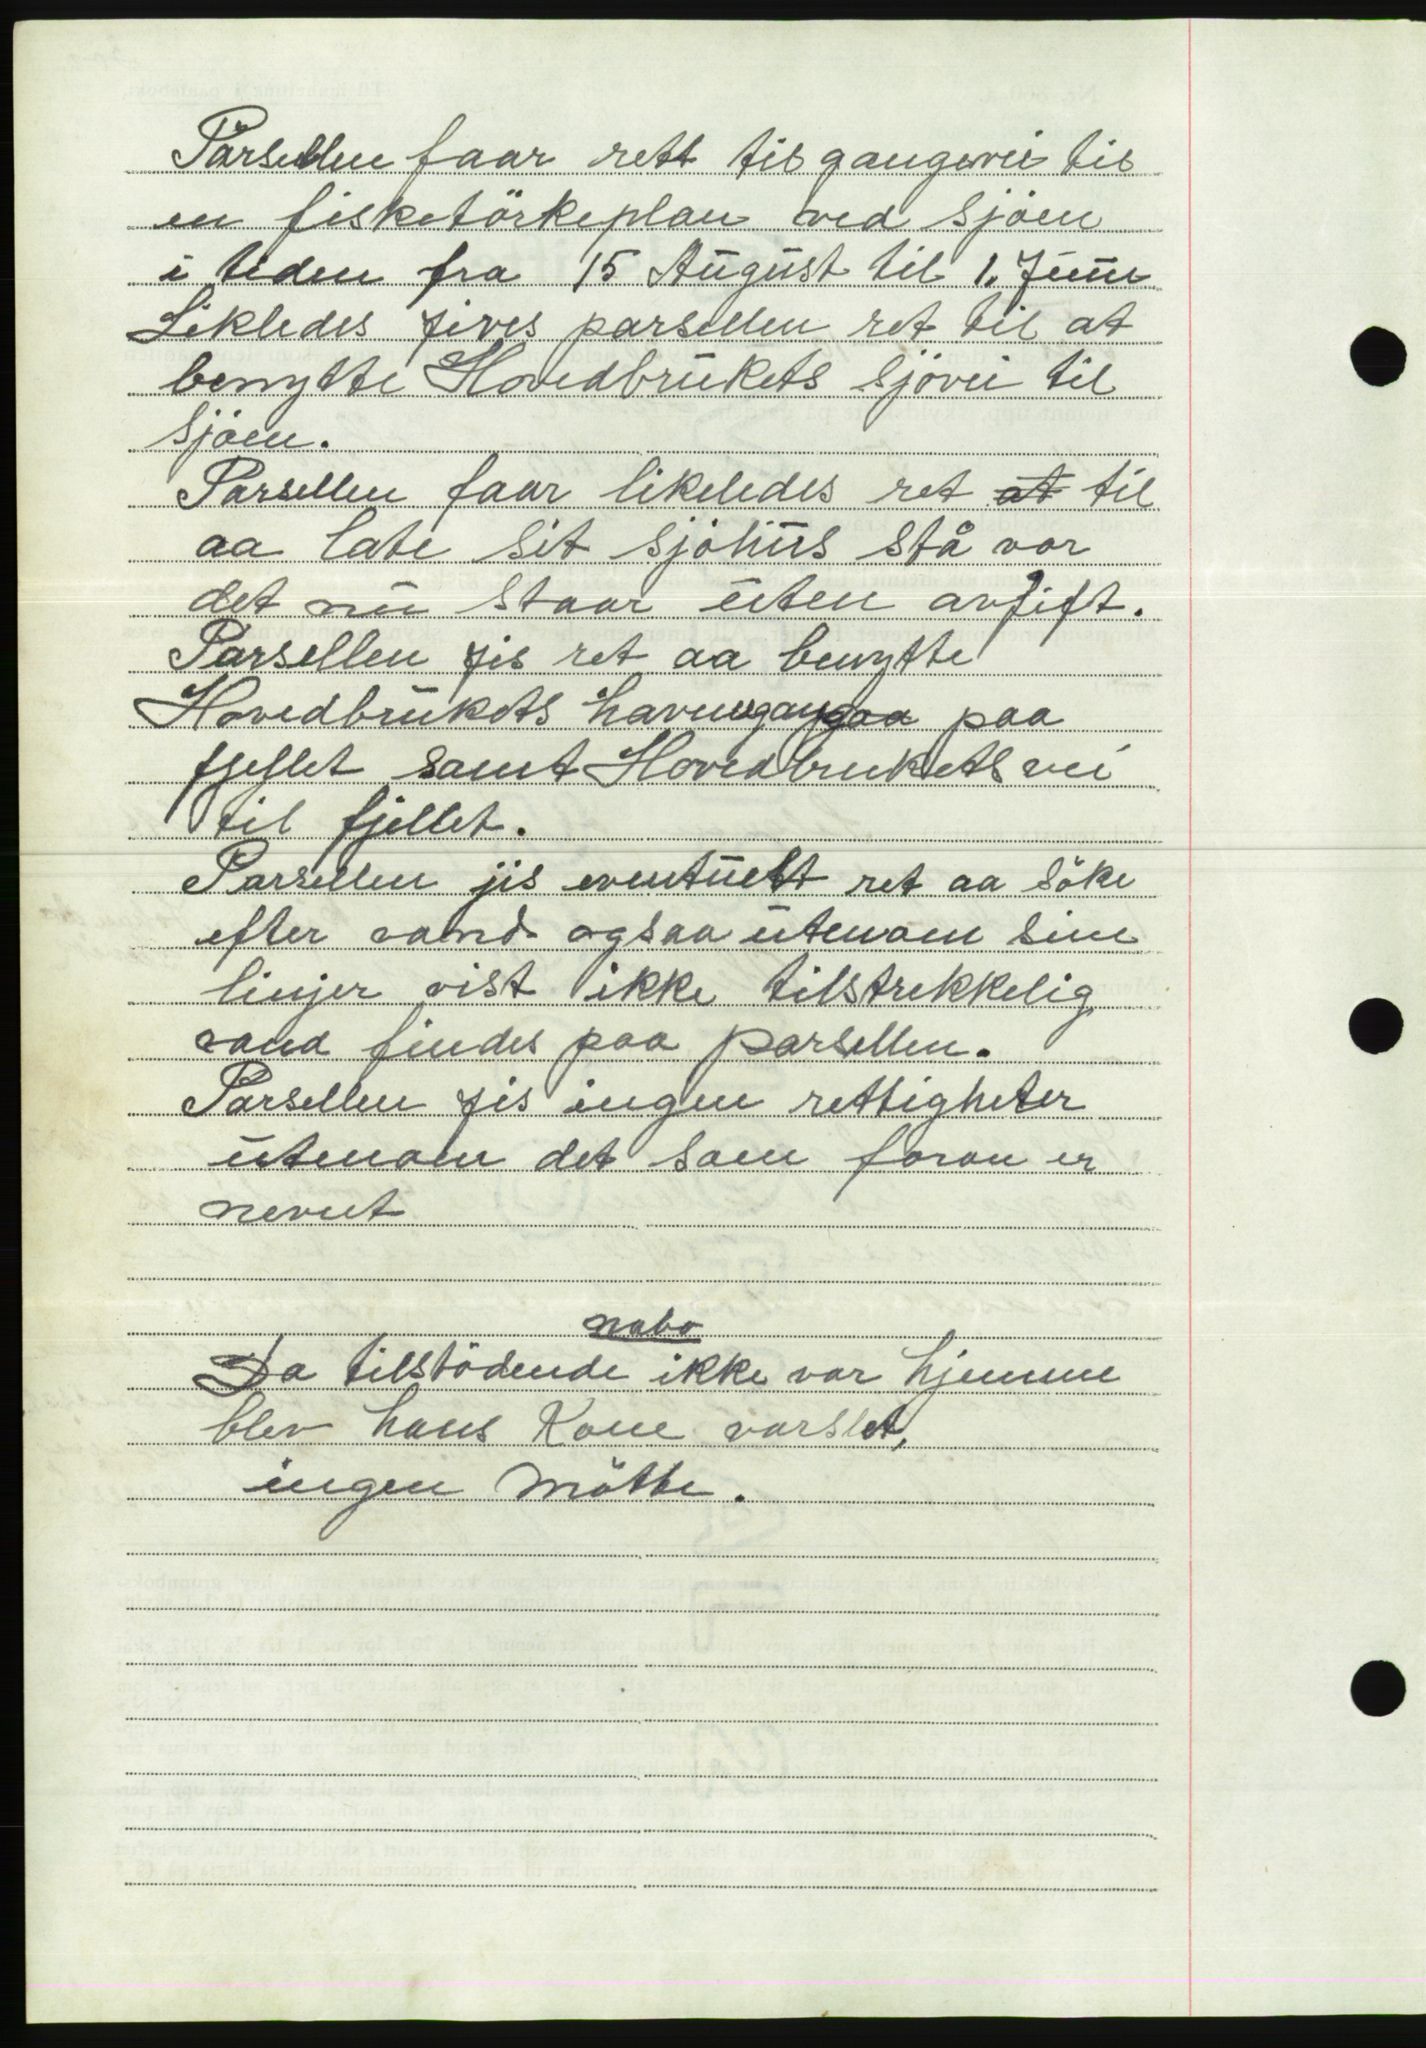 Parsellen faar rett til gangvei til
en fisketörkeplan ved sjöen
i tiden fra 15 August til 1. Juni
Likledes jives parsellen ret til at
benytte Hovedbrukets sjövei til
sjöen.
Parsellen faar likeledes ret at til
aa late sit sjöhus stå vor
det nu staar uten avjift.
Parsellen jis ret aa benytte
Hovedbrukets havnegang paa
fjellet samt Hovedbrukets vei
til fjellet.
Parsellen jis eventuelt ret aa söke
efter vand ogsaa utenom sine
linjer vist ikke tilstrekkelig
vand findes paa parsellen.
Parsellen jis ingen rettigheter
utenom det som foran er
nevnt
nabo
Da tilstödende ikke var hjemme
blev hans Kone varslet,
ingen mötte.